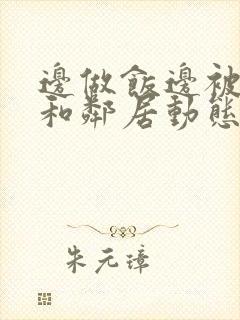 邊做飯邊被
和鄰居動態
朱元璋